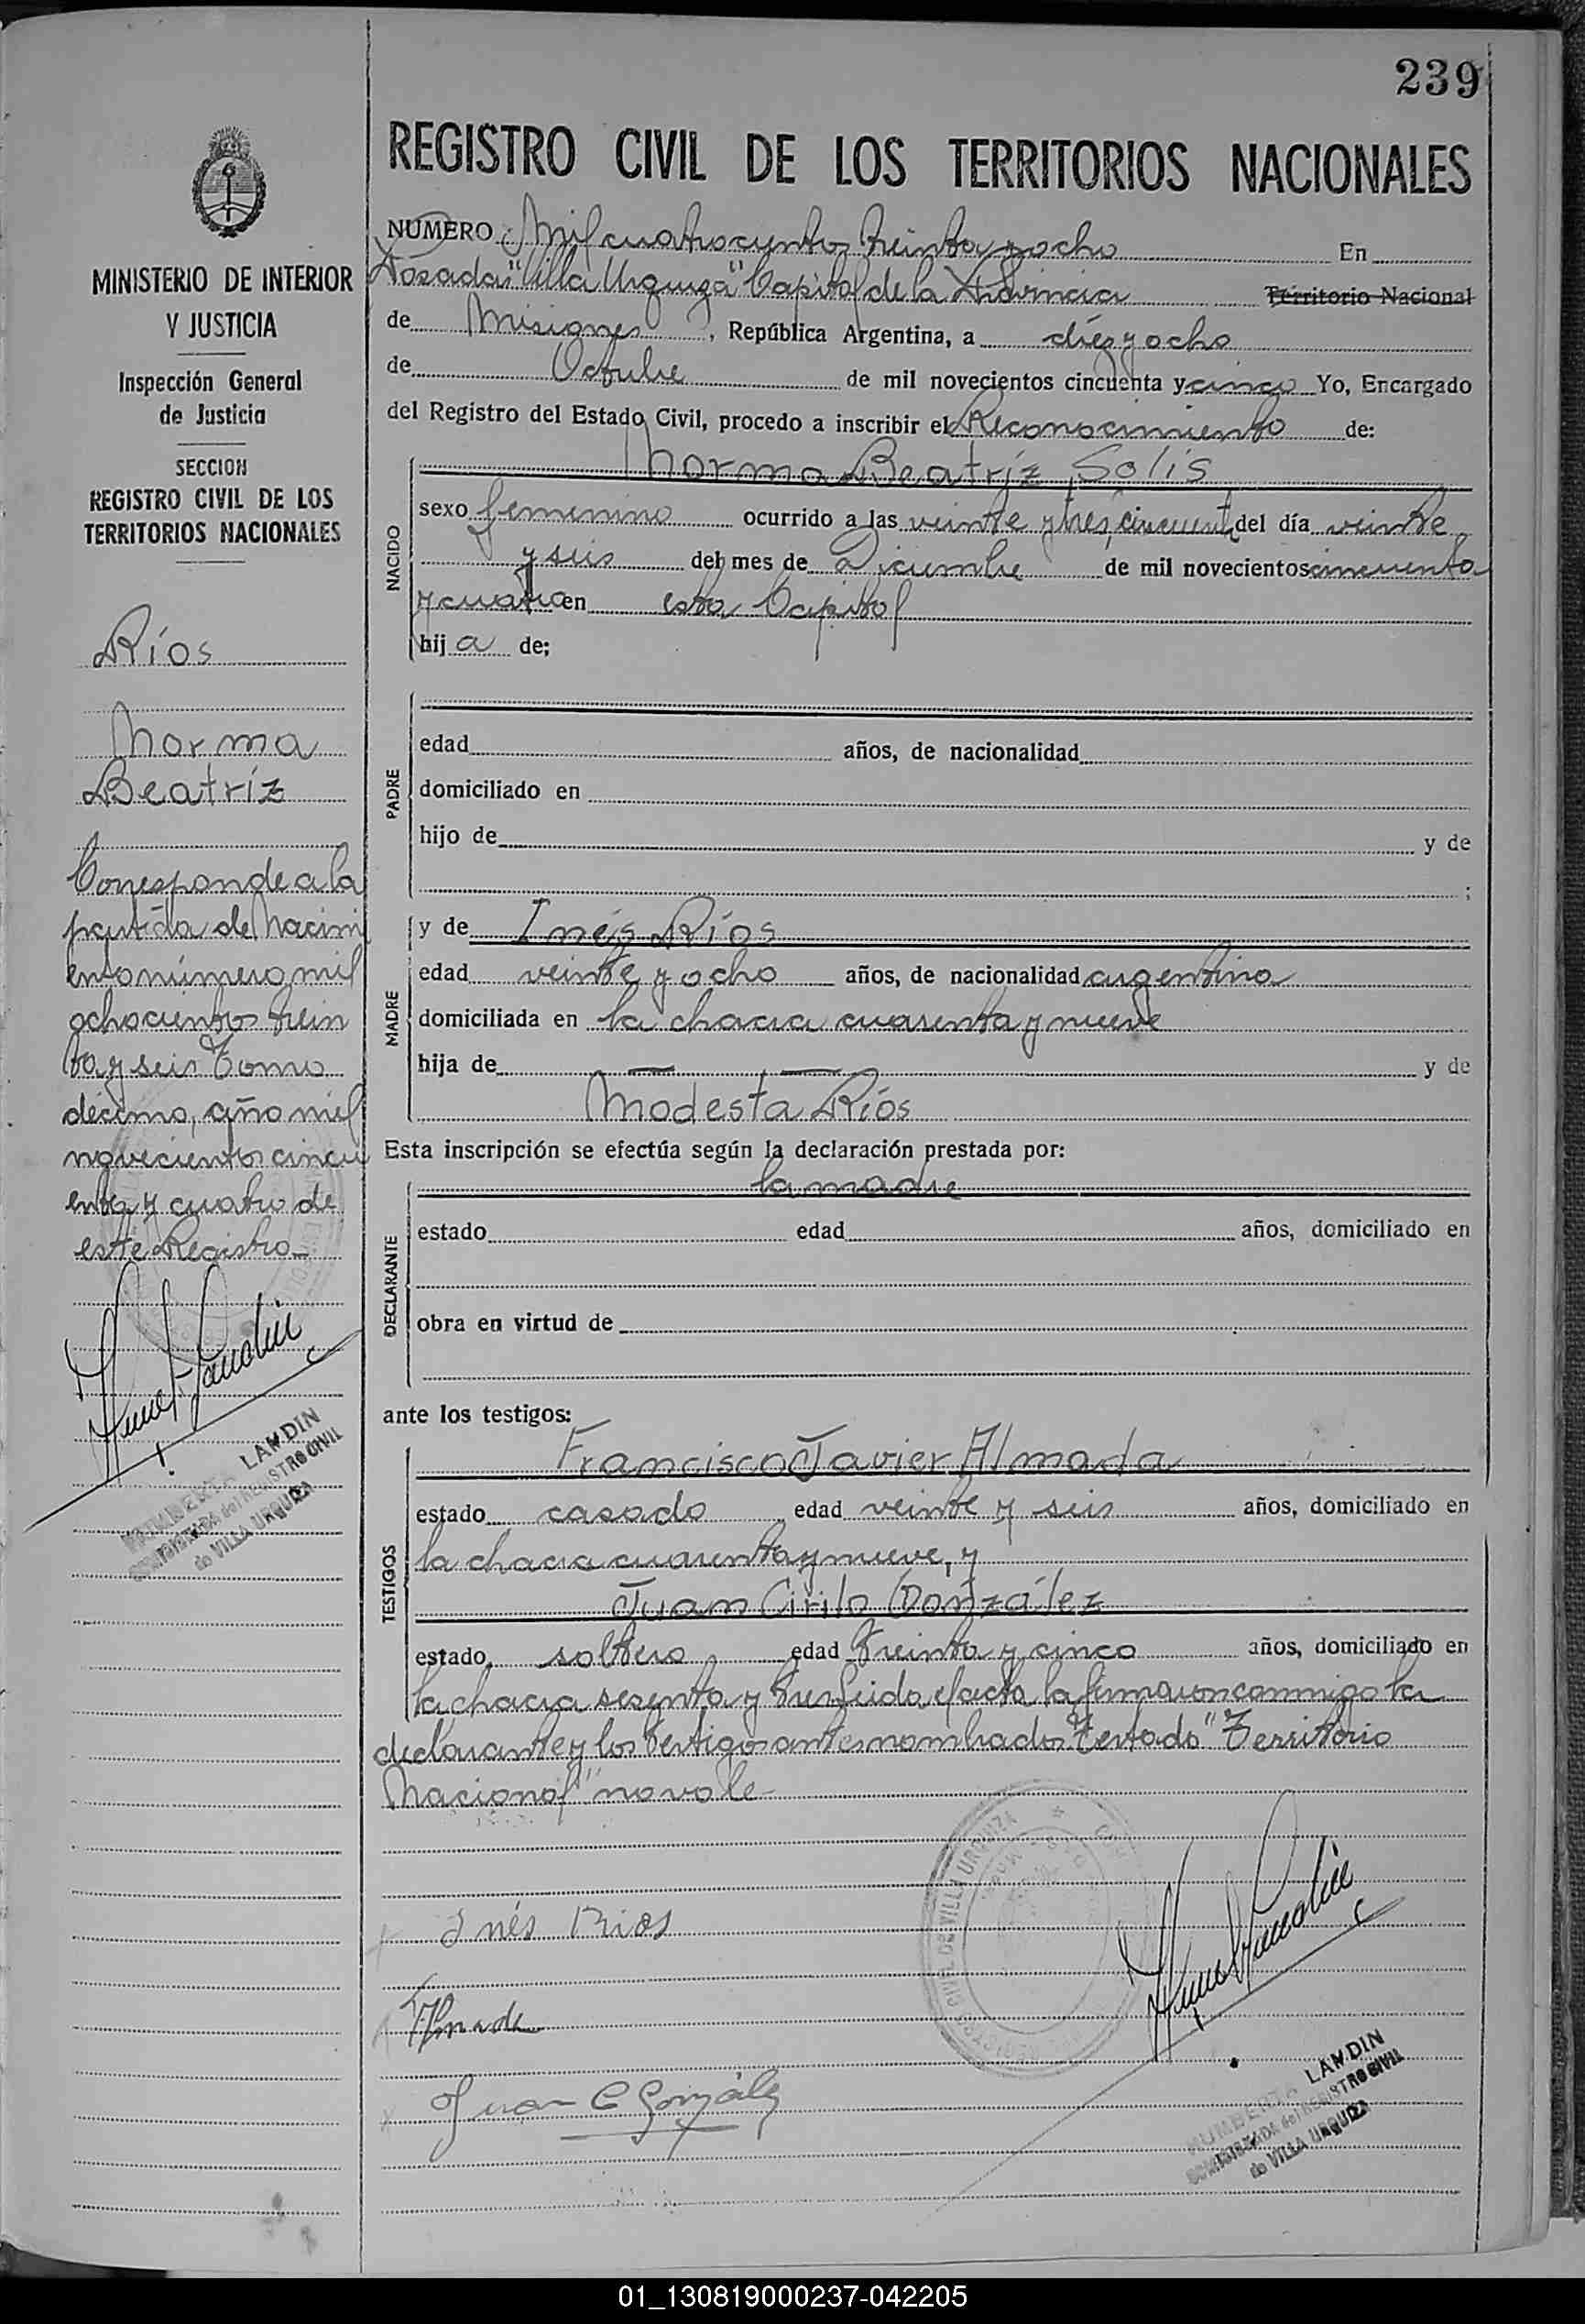 239
MINISTERIO DE INTERIOR
Y JUSTICIA
Inspección General
de Justicia
SECCION
REGISTRO CIVIL DE LOS
TERRITORIOS NACIONALES
Ríos
Norma
Beatríz
Corresponde a la
partida de Nacimi
ento número mil
ochocientos trein
ta y seis Tomo
décimo, año mil
novecientos cincu
enta y cuatro de
este Registro_
LANDIN
de VILLA URQUIZA
REGISTRO CIVIL DE LOS TERRITORIOS NACIONALES
NUMERO Mil cuatrocientos treinta y ocho En
Posadas "Villa Urquiza" Capital de la Provincia Territorio Nacional
de Misiones, República Argentina, a diez y ocho
de Octubre de mil novecientos cincuenta y cinco Yo, Encargado
del Registro del Estado Civil, procedo a inscribir el Reconocimiento de:
Norma Beatríz Solis
NACIDO
sexo femenino ocurrido a las veinte y tres, cincuenta del día veinte
y seis del mes de Diciembre de mil novecientos cincuenta
y cuatro en esta Capital
hij a de;
PADRE
edad años, de nacionalidad
domiciliado en
hijo de y de
;
MADRE
y de Inés Ríos
edad veinte y ocho años, de nacionalidad argentina
domiciliada en la chacra cuarenta y nueve
hija de — — y de
Modesta Ríos
Esta inscripción se efectúa según la declaración prestada por:
la madre
DECLARANTE
estado edad años, domiciliado en
obra en virtud de
ante los testigos:
Francisco Javier Almada
TESTIGOS
estado casado edad veinte y seis años, domiciliado en
la chacra cuarenta y nueve, y
Juan Cirilo González
estado soltero edad treinta y cinco años, domiciliado en
la chacra sesenta y tres leida el acta la firmaron conmigo la
declarante y los testigos antes nombrados Testado "Territorio
Nacional" no vale-
Inés Rios
Almada
Juan C González
REGISTRO CIVIL DE VILLA URQUIZA
HUMBERTO LANDIN
ENCARGADA del REGISTRO CIVIL
de VILLA URQUIZA
01_130819000237-042205